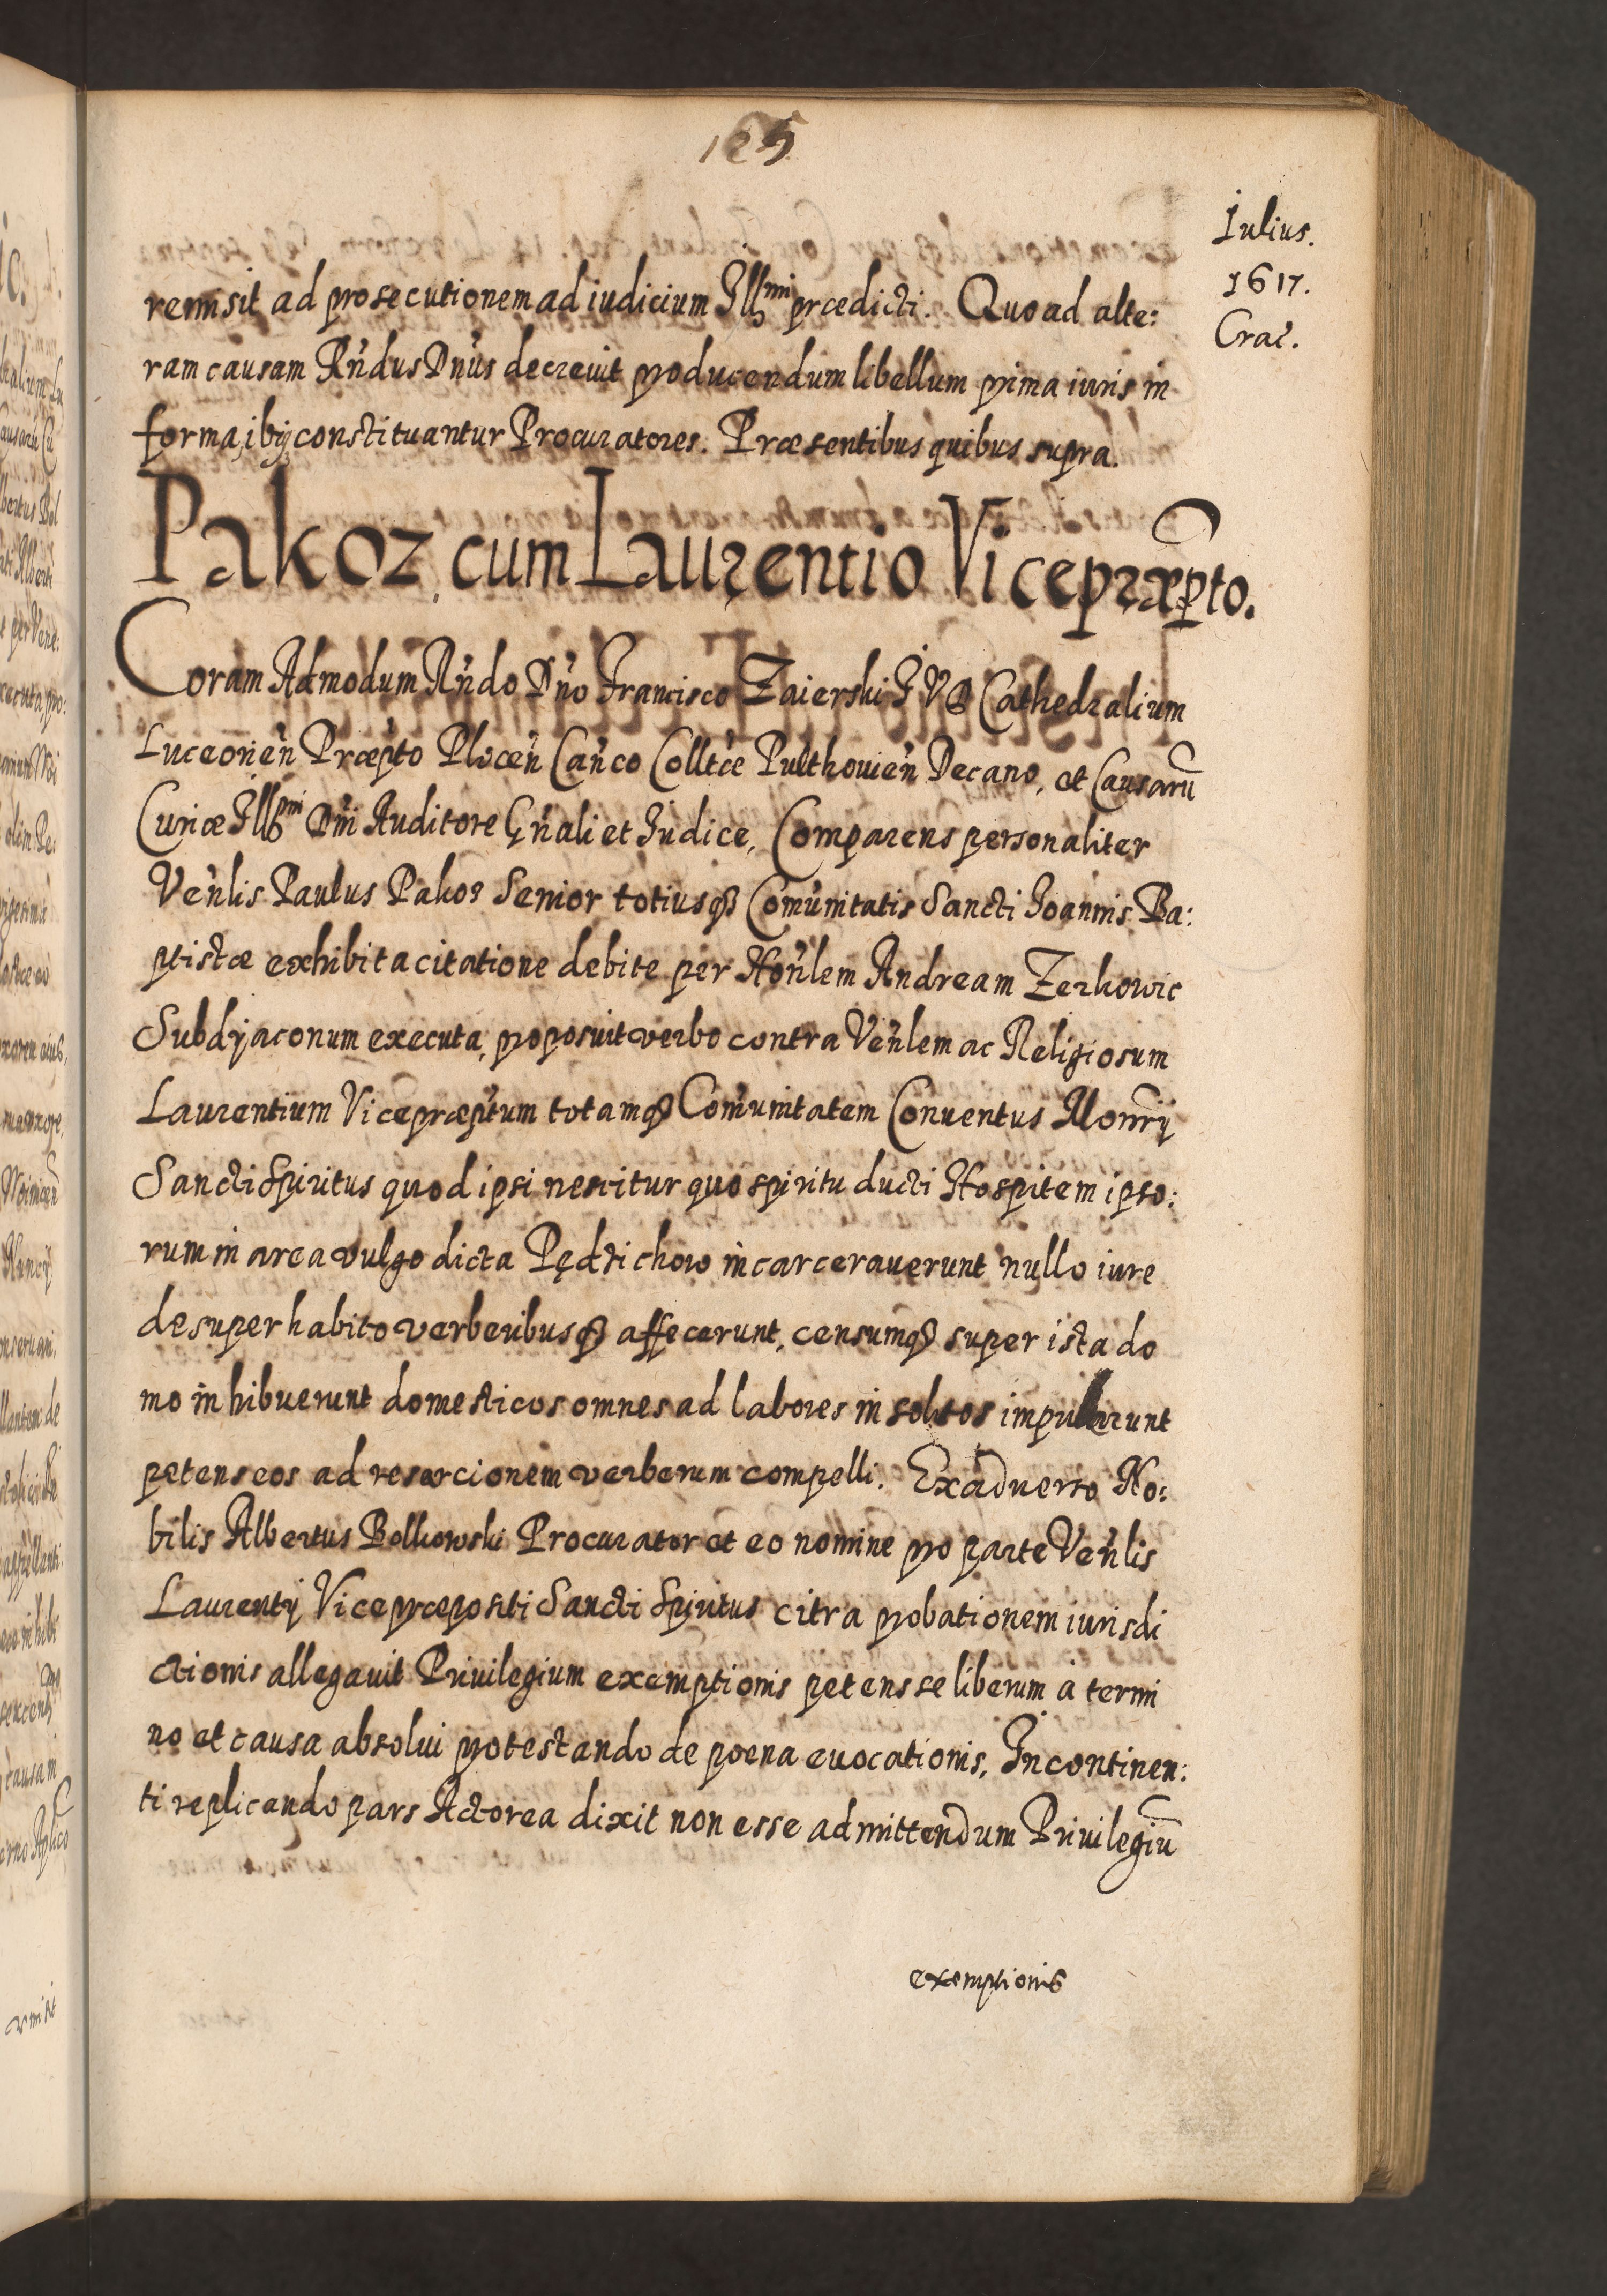 165
Iulius.
1617.
Crac̃.
remisit ad prosecutionem ad iudicium Illmi prædicti. Quo ad alte:
ram causam Rńdus Dńus decreuit producendum libellum prima iuris in
forma, ibiq; constituantur Procuratores. Præsentibus quibus supra.
Pakoz, cum Laurentio Vicepræpto.
Coram Admodum Rńdo Dńo Francisco Zaierski I V D Cathedralium
Luceorień Præpto Ploceń Cańco Colltæ Pulthouień Decano, et Causarū
Curiæ Illmi Dńi Auditore Gńali et Iudice, Comparens personaliter
Veńlis Paulus Pakoz Senior totiusq Comunitatis Sancti Ioannis Ba:
ptistæ exhibita citatione debite per Hońlem Andream Zerkowic
Subdyaconum executa, proposuit verbo contra Veńlem ac Religiosum
Laurentium Vicepræptum totamq Comunitatem Conuentus Monrij
Sancti Spiritus quod ipsi nescitur quo spiritu ducti Hospitem ipso:
rum in area vulgo dicta Pędzichow incarcerauerunt nullo iure
desuper habito verberibusq affecerunt, censumq super ista do
mo inhibuerunt domesticos omnes ad labores insolitos impulerunt
petens eos ad resarcionem verberum compelli. Exaduerso No:
bilis Albertus Bolkowski Procurator et eo nomine pro parte Veńlis
Laurentij Vicepræpositi Sancti Spiritus citra probationem iurisdi
ctionis allegauit Priuilegium exemptionis petens se liberum à termi
no et causa absolui protestando de poena euocationis, Incontinen:
ti replicando pars Actorea dixit non esse admittendum Priuilegiū
exemptionis